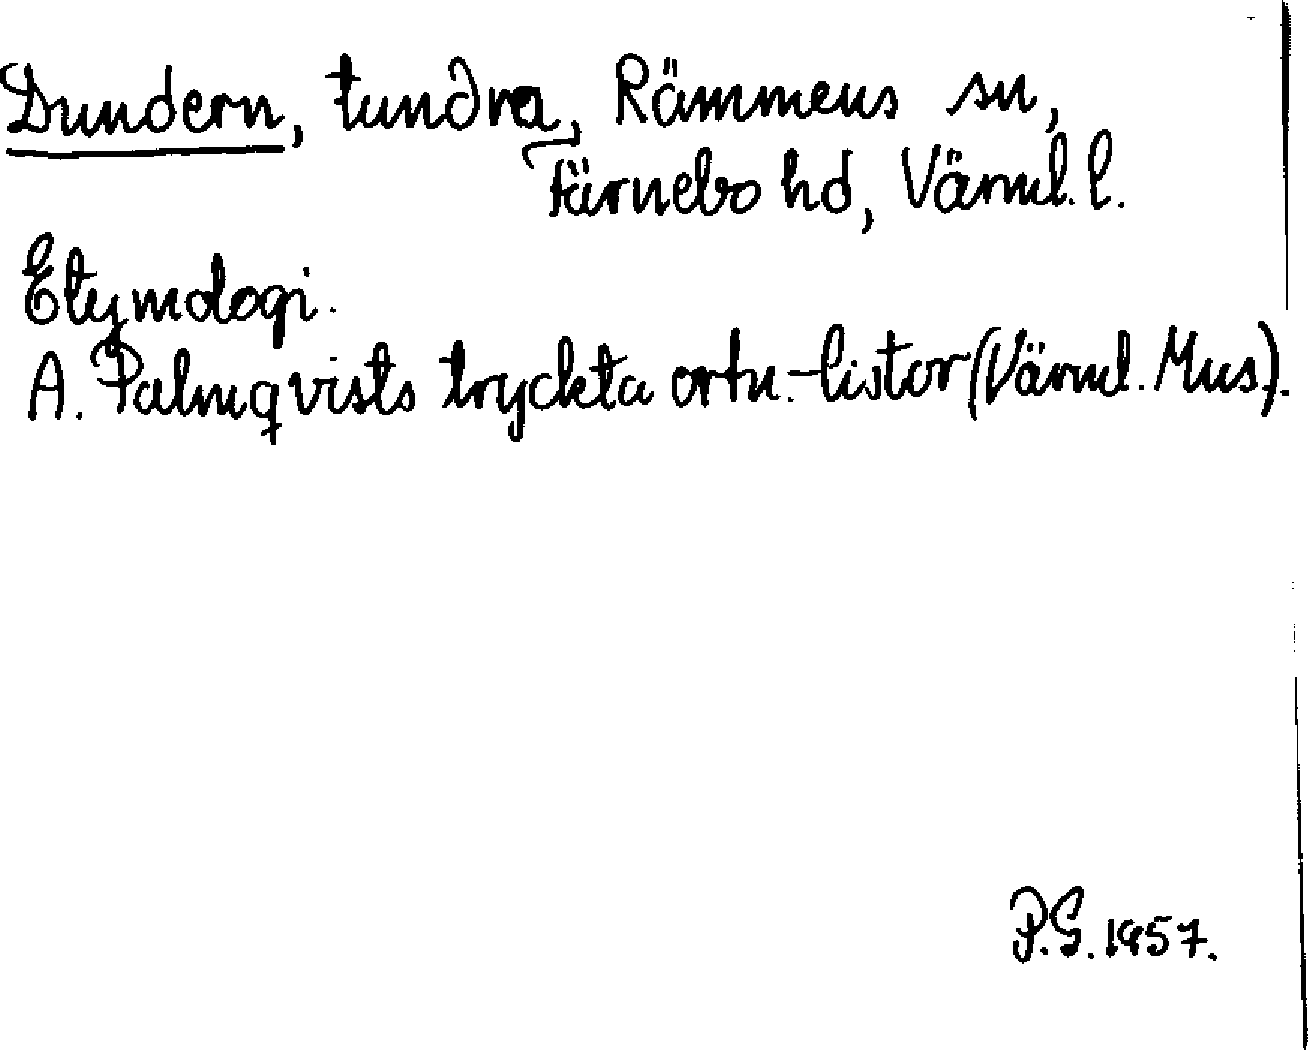 Dundern, tundra, Rämmens sn,
Färnebo hd, Värml. l.
Etymologi.
A. Palmqvists tryckta ortn.-listor (Värml. Mus.).
P.G. 1957.